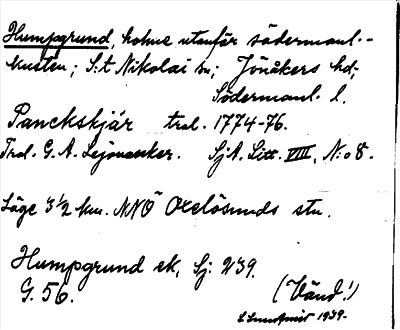 Humpgrund, holme utanför södermanl.-
kusten; S:t Nikolai sn; Jönåkers hd;
Södermanl. l.
Panckskjär trol. 1774-76.
Trol. G. A. Lejonanker. SjA. Litt. VIII, N:o 8.
Läge 3 1/2 km. NNÖ Oxelösunds stn.
Humpgrund ek, Sj: 239.
G. 56.
(Vänd!)
1939.